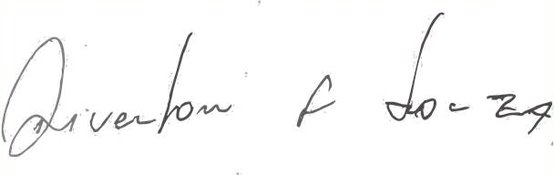 Riverton F Souza